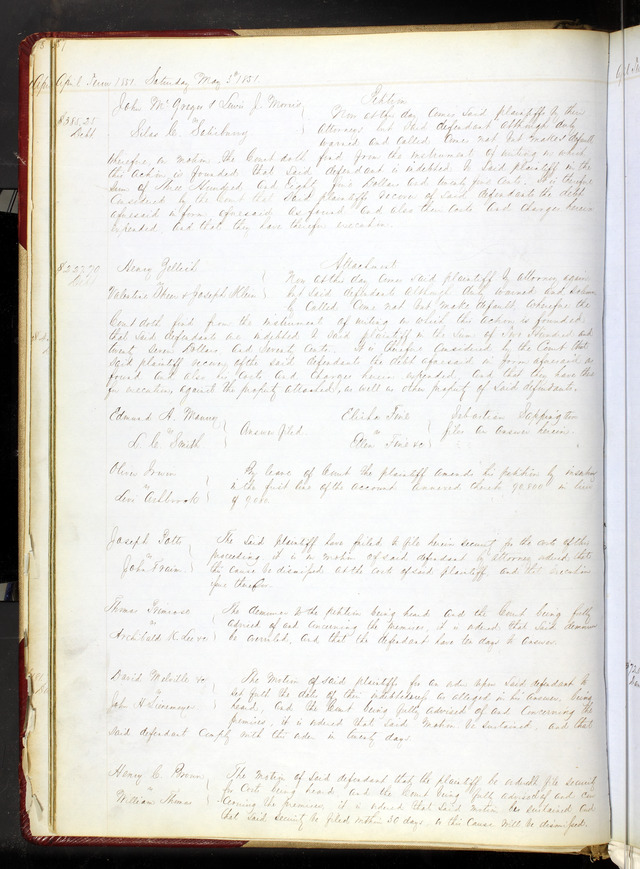 April Term 1851 Saturday May 3d 1851.
John McGregor & Lewis J. Morris
vs
Silas C. Salisbury
Petition
$385,25
Debt
Now at this day came said plaintiffs by their
attorneys but said defendant although duly
warned and called came not but makes default
therefore on motion the Court doth find from the instrument of writing on which
this action is founded that said defendant is indebted to said plaintiff in the
sum of Three Hundred and Eighty five Dollars and twenty five cents. It is therefore
Considered by the Court that said plaintiffs recover of said defendants the debt
aforesaid in form aforesaid as found and also their costs and charges herein
expended and that they have therefor execution.
$227,70
Debt
Henry
vs
Valentine & Joseph Klein
Attachment
Now at this day came said plaintiff by attorney again
but said defendant although duly warned and
Called came not but make default, wherefore the
Court doth find from the instrument of writing on which the action is founded,
that said defendants are indebted to said plaintiff in the sum of Two Hundred and
twenty seven Dollars and Seventy Cents. It is therefore Considered by the Court that
said plaintiff recover of the said defendants the debt aforesaid in form aforesaid as
found and also his costs and charges herein expended. And that they have this
for execution, against the property attached, as well as other property of said defendants.
Edmund A. Manny
vs
L. C. Smith
Answer filed
Elisha Tine
vs
Ellen Tine &c
Sebastian Sappington
files an answer herein.
Oliver Irwin
vs
Levi Ashbrook
By leave of Court the plaintiff amends his petition by inserting
in the first line of the account annexed thereto 90.800 in lieu
of 9000
Joseph Potts
vs
John
The said plaintiff have failed to file herein security for the costs of this
proceeding it is on motion of said defendant by attorney ordered that
the cause be dismissed at the costs of said plaintiff, and that execution
issue therefor.
Thomas Primrose
vs
Archibald K. Lee &c
The demurrer to the petition being heard and the Court being fully
advised of and concerning the premises, it is ordered that said demurrer
be overruled, and that the defendant have ten days to answer.
David Melville &c
vs
John H. Tiernmeyer
The Motion of said plaintiff for an order upon said defendant to
set forth the date of their partnership as alleged in his answer, being
heard, and the Court being fully advised of and Concerning the
premises, it is ordered that said motion be sustained, and that
said defendant comply with the order in twenty days
Henry C. Brown
vs
William Thomas
The motion of said defendant that the plaintiff be ordered to file security
for costs being heard and the Court being fully advised of and con-
cerning the premises it is ordered that said motion be sustained and
that said security be filed within 30 days or this cause will be dismissed.